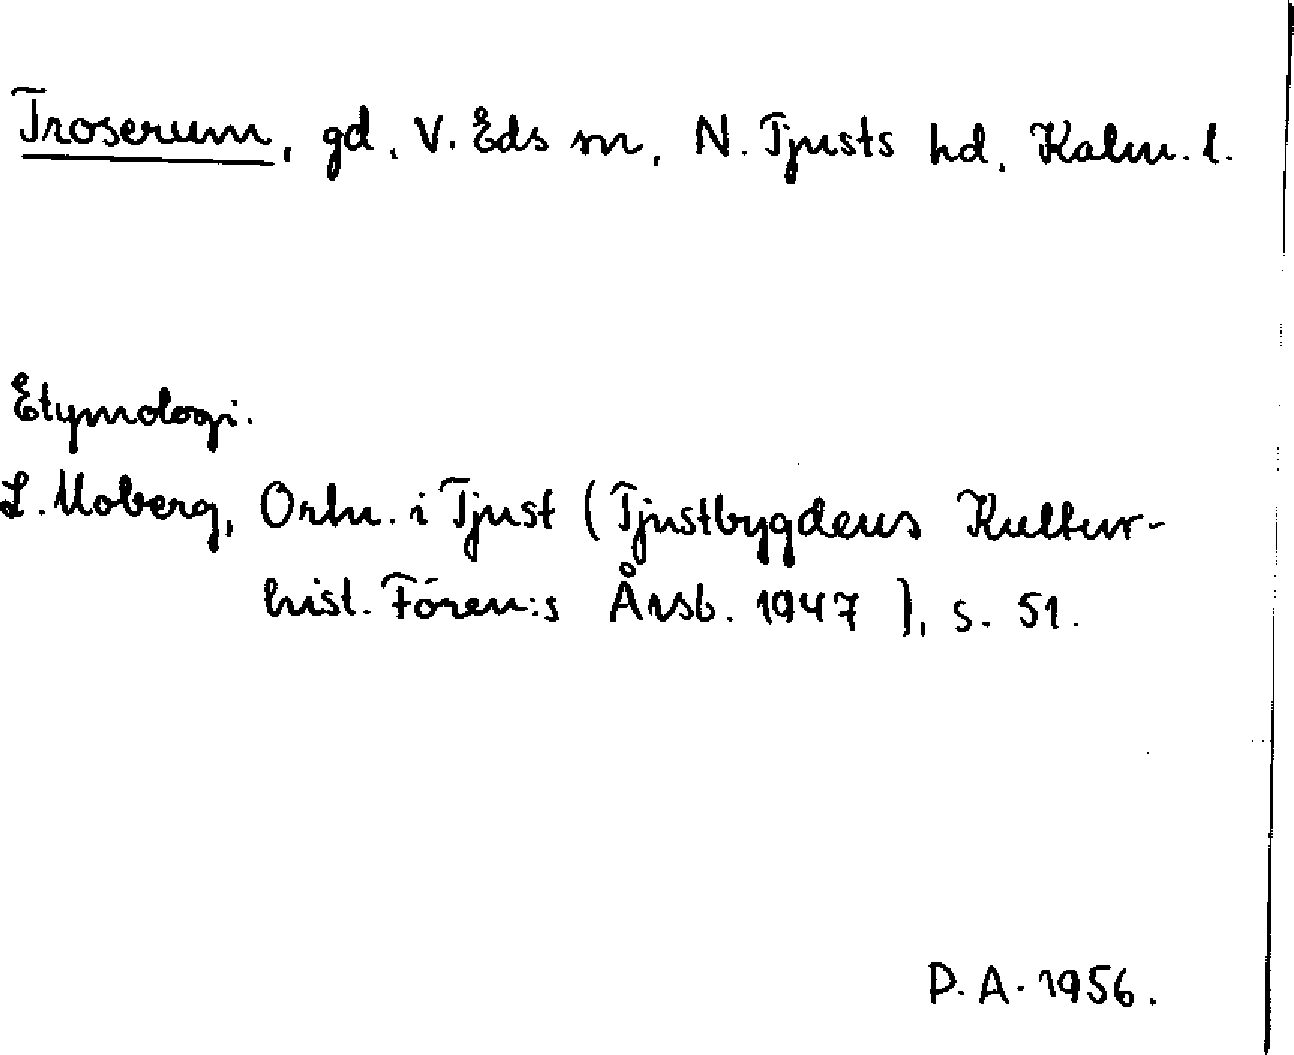 Troserum, gd, V. Eds sn, N. Tjusts hd, Kalm. l.
Etymologi.
L. Moberg, Ortn. i Tjust (Tjustbygdens Kultur-
hist. Fören:s Årsb. 1947), s. 51.
P. A. 1956.